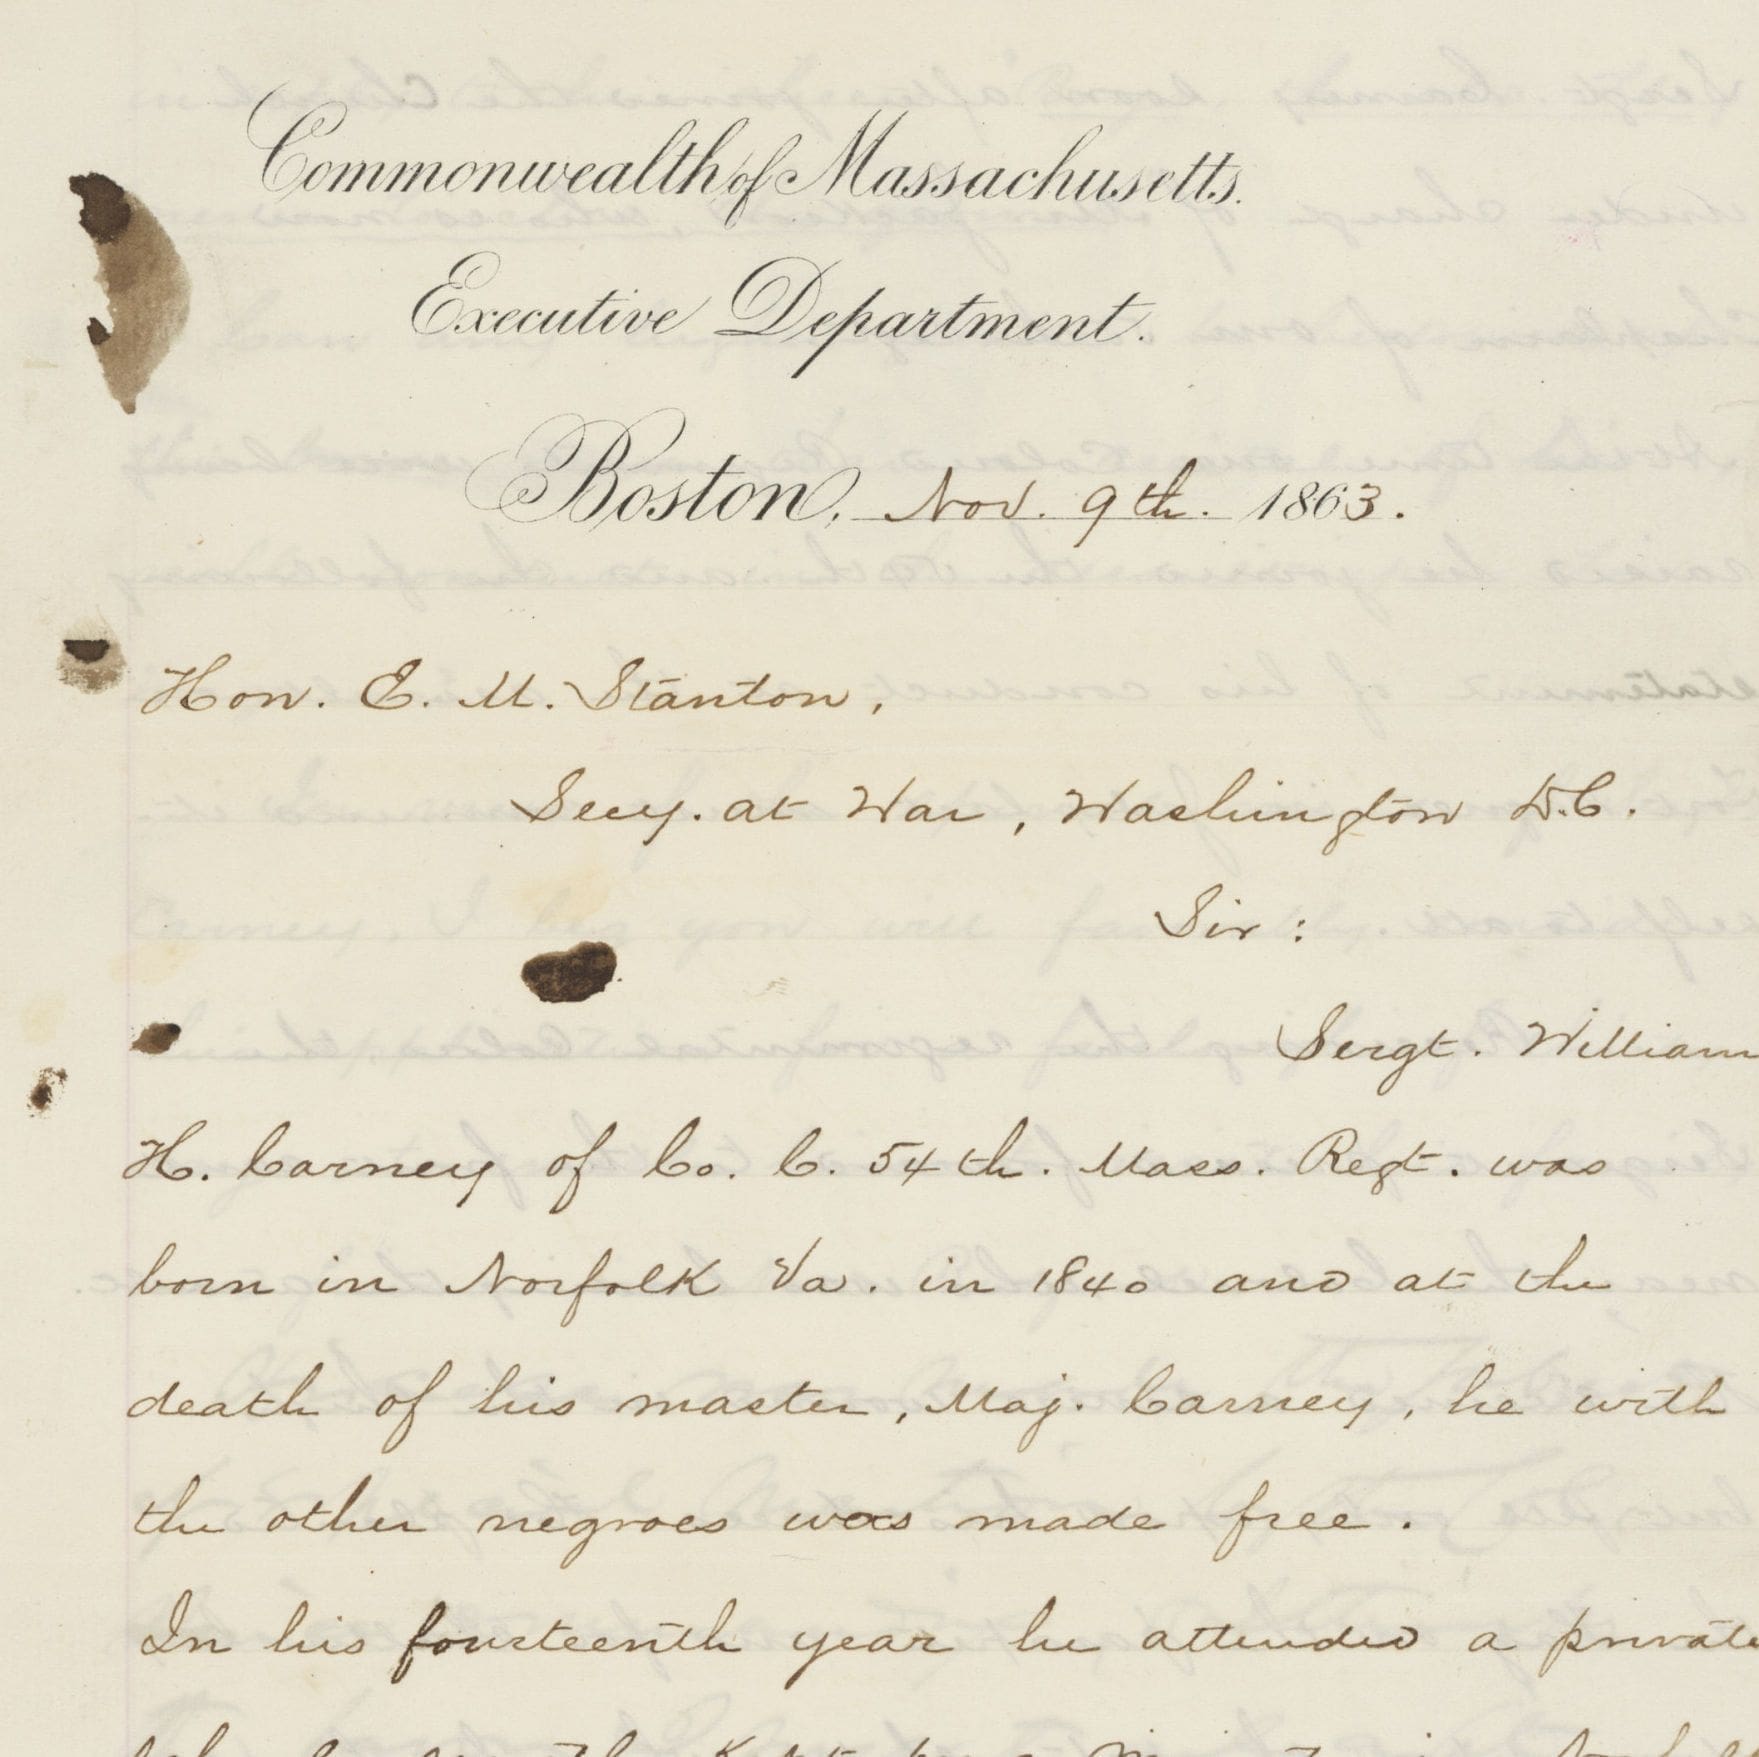 Commonwealth of Massachusetts.
Executive Department.
Boston, Nov. 9th. 1863.
Hon. E. M. Stanton,
Secy. at War, Washington D.C.
Sir:
Sergt. William
H. Carney of Co. C. 54th. Mass. Regt. was
born in Norfolk Va. in 1840 and at the
death of his master, Maj. Carney, he with
the other negroes was made free.
In his fourteenth year he attended a private